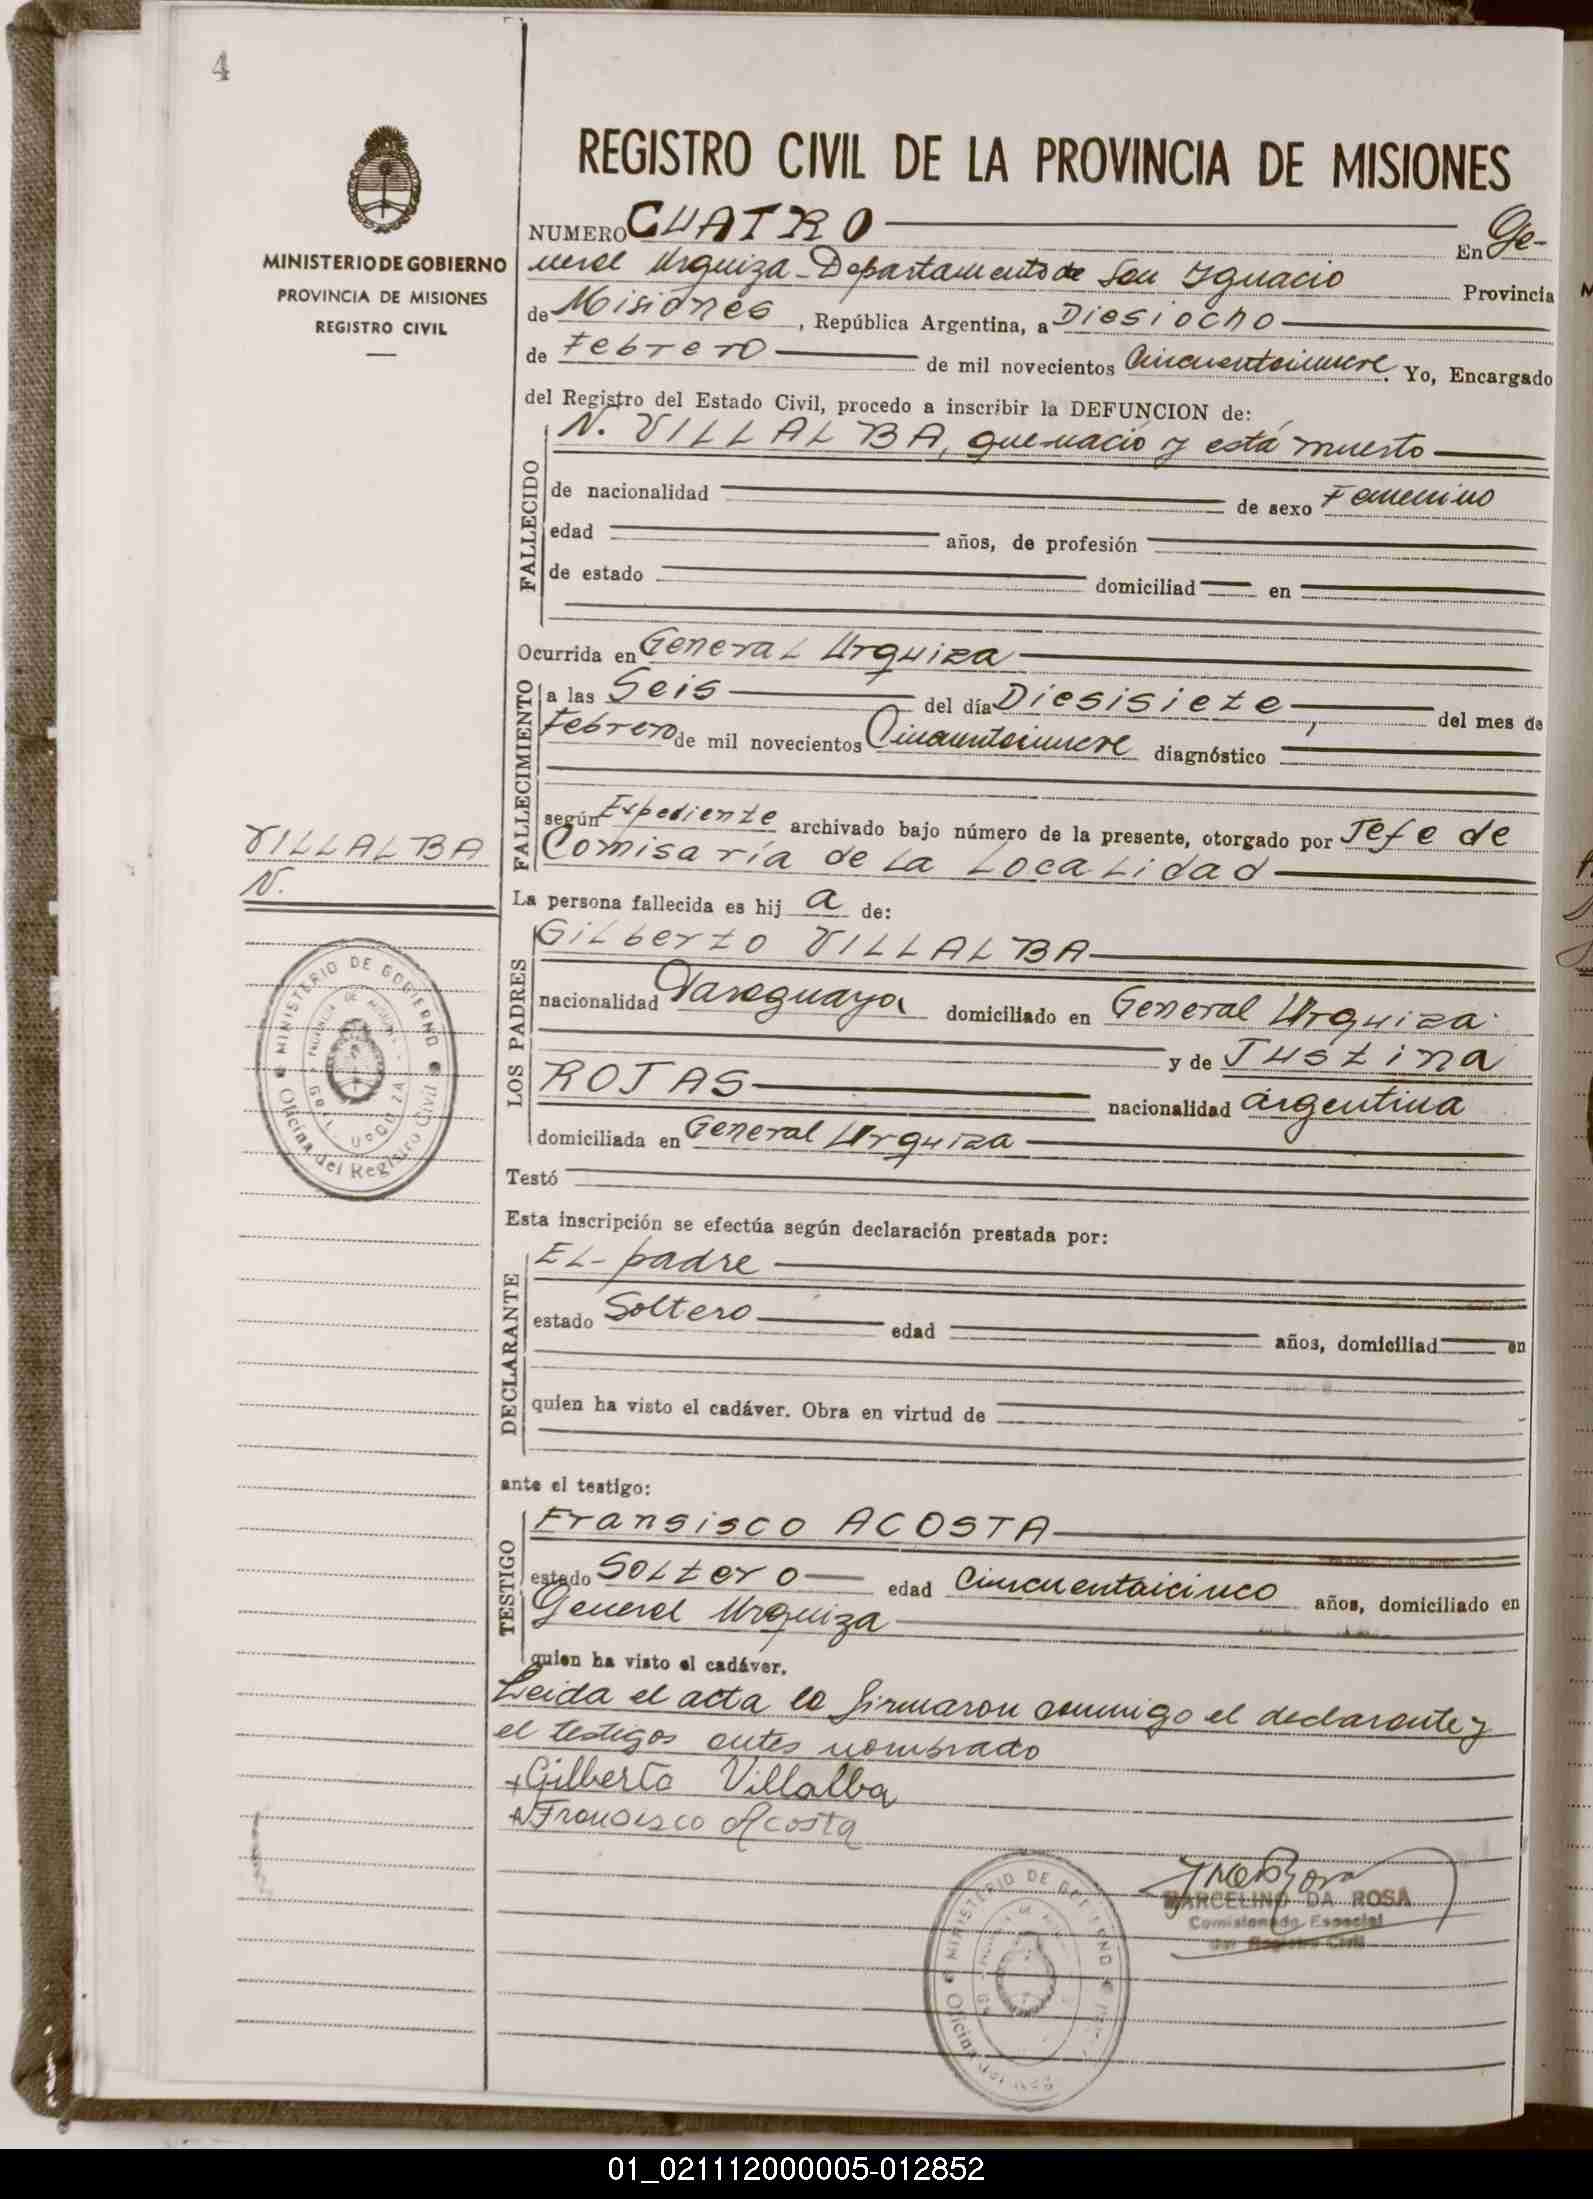 4
REGISTRO CIVIL DE LA PROVINCIA DE MISIONES
MINISTERIO DE GOBIERNO
PROVINCIA DE MISIONES
REGISTRO CIVIL
NUMERO CUATRO En Ge-
neral Urquiza - Departamento de San Ignacio Provincia
de Misiones, República Argentina, a Diesiocho
de Febrero de mil novecientos Cincuentainueve. Yo, Encargado
del Registro del Estado Civil, procedo a inscribir la DEFUNCION de:
FALLECIDO
N. VILLALBA, que nació y está muerto
de nacionalidad de sexo Femenino
edad años, de profesión
de estado domiciliad en
Ocurrida en General Urquiza
FALLECIMIENTO
a las Seis del día Diesisiete, del mes de
Febrero de mil novecientos Cincuentainueve diagnóstico
según Expediente archivado bajo número de la presente, otorgado por Jefe de
Comisaría de La Localidad
VILLALBA
N.
La persona fallecida es hij a de:
LOS PADRES
Gilberto VILLALBA
nacionalidad Paraguaya domiciliado en General Urquiza
y de Justina
ROJAS nacionalidad argentina
domiciliada en General Urquiza
MINISTERIO DE GOBIERNO
Oficina del Registro Civil
Testó
Esta inscripción se efectúa según declaración prestada por:
DECLARANTE
EL-padre
estado Soltero edad años, domiciliad en
quien ha visto el cadáver. Obra en virtud de
ante el testigo:
TESTIGO
Fransisco ACOSTA
estado Soltero edad Cincuentaicinco años, domiciliado en
General Urquiza
quien ha visto el cadáver.
Leida el acta lo firmaron conmigo el declarante y
el testigos antes nombrado
Gilberto Villalba
Francisco Acosta
MARCELINO DA ROSA
Comisionado Especial
del Registro Civil
MINISTERIO DE GOBIERNO
Oficina
01_021112000005-012852